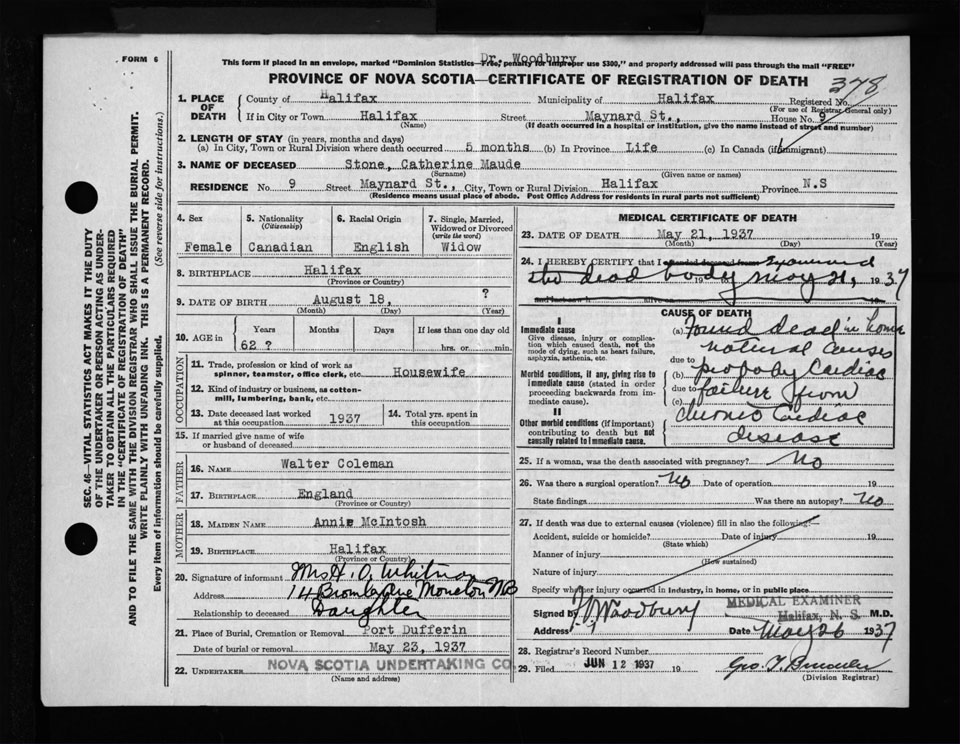 FORM 6
Dr. Woodbury
This form if placed in an envelope, marked "Dominion Statistics—Free, penalty for improper use $300," and properly addressed will pass through the mail "FREE"
PROVINCE OF NOVA SCOTIA—CERTIFICATE OF REGISTRATION OF DEATH
378
1. PLACE OF DEATH
County of Halifax Municipality of Halifax Registered No.
(For use of Registrar General only)
If in City or Town Halifax Street Maynard St., House No. 9
(Name) (If death occurred in a hospital or institution, give the name instead of street and number)
2. LENGTH OF STAY (in years, months and days)
(a) In City, Town or Rural Division where death occurred 5 months (b) In Province Life (c) In Canada (if immigrant)
3. NAME OF DECEASED Stone, Catherine Maude
(Surname) (Given name or names)
RESIDENCE No. 9 Street Maynard St., City, Town or Rural Division Halifax Province N.S
(Residence means usual place of abode. Post Office Address for residents in rural parts not sufficient)
SEC. 46—VITAL STATISTICS ACT MAKES IT THE DUTY
OF THE UNDERTAKER OR PERSON ACTING AS UNDER-
TAKER TO OBTAIN ALL THE PARTICULARS REQUIRED
IN THE "CERTIFICATE OF REGISTRATION OF DEATH"
AND TO FILE THE SAME WITH THE DIVISION REGISTRAR WHO SHALL ISSUE THE BURIAL PERMIT.
WRITE PLAINLY WITH UNFADING INK. THIS IS A PERMANENT RECORD.
Every item of information should be carefully supplied. (See reverse side for instructions.)
4. Sex
Female
5. Nationality
(Citizenship)
Canadian
6. Racial Origin
English
7. Single, Married,
Widowed or Divorced
(write the word)
Widow
8. BIRTHPLACE Halifax
(Province or Country)
9. DATE OF BIRTH August 18, ?
(Month) (Day) (Year)
10. AGE in
Years Months Days If less than one day old
62 ? hrs. or min.
OCCUPATION
11. Trade, profession or kind of work as
spinner, teamster, office clerk, etc. Housewife
12. Kind of industry or business, as cotton-
mill, lumbering, bank, etc.
13. Date deceased last worked
at this occupation. 1937
14. Total yrs. spent in
this occupation
15. If married give name of wife
or husband of deceased
FATHER
16. NAME Walter Coleman
17. BIRTHPLACE England
(Province or Country)
MOTHER
18. MAIDEN NAME Annie McIntosh
19. BIRTHPLACE Halifax
(Province or Country)
20. Signature of informant Mrs H. O. Whitney
Address 14 Ave Moncton NB
Relationship to deceased Daughter
21. Place of Burial, Cremation or Removal Port Dufferin
Date of burial or removal May 23, 1937
22. UNDERTAKER NOVA SCOTIA UNDERTAKING CO.
(Name and address)
MEDICAL CERTIFICATE OF DEATH
23. DATE OF DEATH May 21, 1937 19
(Month) (Day) (Year)
24. I HEREBY CERTIFY that I examined
the dead body May 21, 1937
CAUSE OF DEATH
I
Immediate cause
Give disease, injury or complica-
tion which caused death, not the
mode of dying, such as heart failure,
asphyxia, asthenia, etc.
Morbid conditions, if any, giving rise to
immediate cause (stated in order
proceeding backwards from im-
mediate cause).
II
Other morbid conditions (if important)
contributing to death but not
causally related to immediate cause.
(a) Found dead in home
due to natural causes
(b) probably Cardiac
due to failure from
(c) chronic Cardiac
disease
25. If a woman, was the death associated with pregnancy? No
26. Was there a surgical operation? No Date of operation 19
State findings Was there an autopsy? No
27. If death was due to external causes (violence) fill in also the following:—
Accident, suicide or homicide? Date of injury 19
(State which)
Manner of injury
(How sustained)
Nature of injury
Specify whether injury occurred in industry, in home, or in public place
MEDICAL EXAMINER
Halifax, N. S.
Signed by Woodbury M.D.
Address Date May 26 1937
28. Registrar's Record Number
29. Filed JUN 12 1937 19
(Division Registrar)